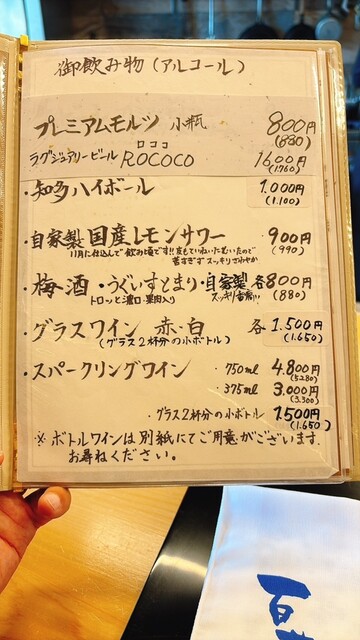 御飲み物(アルコール)
プレミアムモルツ 小瓶 800円
(880)
ロココ
ラグジュアリービール ROCOCO 1600円
(1.760)
・知多ハイボール 1.000円
(1.100)
・自家製国産レモンサワー ・900円
(990)
11月に仕込んで飲み頃です!!皮もていねいにむいたので
苦すぎずスッキリさわやか
・梅酒・うぐいすとまり・自家製 各800円
(880)
トロッと濃口・果肉入り
スッキリ香高い
・グラスワイン 赤・白 各1.500円
(1.650)
(グラス2杯分の小ボトル)
・スパークリングワイン ・750ml 4.800円
(5280)
・375ml 3.000円
(3.300)
・グラス2杯分の小ボトル 1500円
(1.650)
※ボトルワインは別紙にてご用意がございます。
お尋ねください。
百